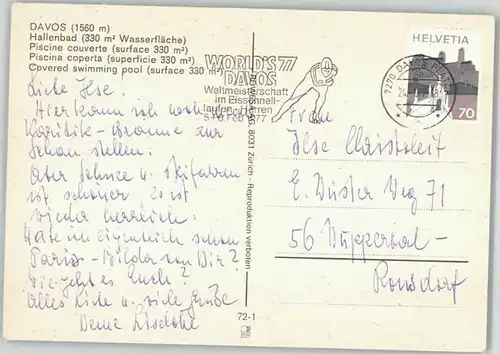 DAVOS (1560 m)
Hallenbad (330 m² Wasserfläche)
Piscine couverte (surface 330 m²)
Piscina coperta (superficie 330 m²)
Covered swimming pool (surface 330 m²)
WORLD'S 77
DAVOS
Weltmeisterschaft
im Eisschnell-
laufen Herren
5+6 Feb 1977
HELVETIA
70
7270 DAVOS
Liebe Ilse.
Hier kann ich
zur
Schau stellen.
Aber Schnee u. Skifahren
ist schöner, es ist
wieder herrlich.
Hatte ich eigentlich schon
Paris-Bilder von Dir?
Wie geht es Euch?
Alles Liebe u. viele Grüße
Deine Liselotte
Frau
Ilse
E. Weg 71
56 Wuppertal-
Ronsdorf
8031 Zürich - Reproduktion verboten
72-1